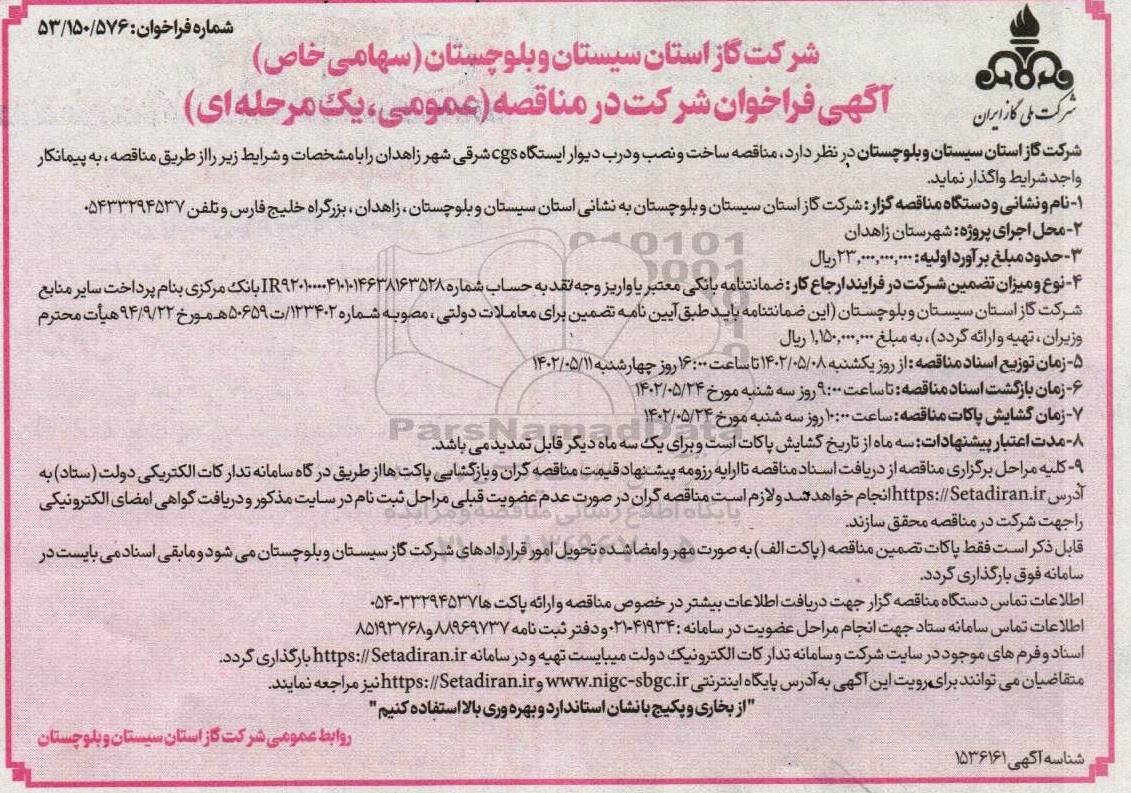 شماره فراخوان: ۵۳/۱۵۰/۵۷۶
شرکت گاز استان سیستان و بلوچستان (سهامی خاص)
آگهی فراخوان شرکت در مناقصه (عمومی، یک مرحله ای)
شرکت ملی گاز ایران
شرکت گاز استان سیستان و بلوچستان در نظر دارد، مناقصه ساخت و نصب و درب دیوار ایستگاه cgs شرقی شهر زاهدان را با مشخصات و شرایط زیر را از طریق مناقصه، به پیمانکار
واجد شرایط واگذار نماید.
۱- نام و نشانی و دستگاه مناقصه گزار: شرکت گاز استان سیستان و بلوچستان به نشانی استان سیستان و بلوچستان، زاهدان، بزرگراه خلیج فارس و تلفن ۰۵۴۳۳۲۹۴۵۳۷
۲- محل اجرای پروژه: شهرستان زاهدان
۳- حدود مبلغ برآورد اولیه: ۲۳,۰۰۰,۰۰۰,۰۰۰ ریال
۴- نوع و میزان تضمین شرکت در فرایند ارجاع کار: ضمانتنامه بانکی معتبر یا واریز وجه نقد به حساب شماره IR۹۲۰۱۰۰۰۰۴۱۰۱۰۱۴۶۳۸۱۶۳۵۲۸ بانک مرکزی بنام پرداخت سایر منابع
شرکت گاز استان سیستان و بلوچستان (این ضمانتنامه باید طبق آیین نامه تضمین برای معاملات دولتی، مصوبه شماره ۱۲۳۴۰۲/ت ۵۰۶۵۹هـ مورخ ۹۴/۹/۲۲ هیأت محترم
وزیران، تهیه و ارائه گردد)، به مبلغ ۱,۱۵۰,۰۰۰,۰۰۰ ریال
۵- زمان توزیع اسناد مناقصه: از روز یکشنبه ۱۴۰۲/۰۵/۰۸ تا ساعت ۱۶:۰۰ روز چهارشنبه ۱۴۰۲/۰۵/۱۱
۶- زمان بازگشت اسناد مناقصه: تا ساعت ۹:۰۰ روز سه شنبه مورخ ۱۴۰۲/۰۵/۲۴
۷- زمان گشایش پاکات مناقصه: ساعت ۱۰:۰۰ روز سه شنبه مورخ ۱۴۰۲/۰۵/۲۴
۸- مدت اعتبار پیشنهادات: سه ماه از تاریخ گشایش پاکات است و برای یک سه ماه دیگر قابل تمدید می باشد.
۹- کلیه مراحل برگزاری مناقصه از دریافت اسناد مناقصه تا ارایه رزومه پیشنهاد قیمت مناقصه گران و بازگشایی پاکت ها از طریق درگاه سامانه تدارکات الکتریکی دولت (ستاد) به
آدرس https://Setadiran.ir انجام خواهد شد و لازم است مناقصه گران در صورت عدم عضویت قبلی مراحل ثبت نام در سایت مذکور و دریافت گواهی امضای الکترونیکی
را جهت شرکت در مناقصه محقق سازند.
قابل ذکر است فقط پاکات تضمین مناقصه (پاکت الف) به صورت مهر و امضا شده تحویل امور قراردادهای شرکت گاز سیستان و بلوچستان می شود و مابقی اسناد می بایست در
سامانه فوق بارگذاری گردد.
اطلاعات تماس دستگاه مناقصه گزار جهت دریافت اطلاعات بیشتر در خصوص مناقصه و ارائه پاکت ها ۳۳۲۹۴۵۳۷-۰۵۴
اطلاعات تماس سامانه ستاد جهت انجام مراحل عضویت در سامانه: ۴۱۹۳۴-۰۲۱ و دفتر ثبت نامه ۸۸۹۶۹۷۳۷ و ۸۵۱۹۳۷۶۸
اسناد و فرم های موجود در سایت شرکت و سامانه تدارکات الکترونیک دولت میبایست تهیه و در سامانه https://Setadiran.ir بارگذاری گردد.
متقاضیان می توانند برای رویت این آگهی به آدرس پایگاه اینترنتی www.nigc-sbgc.ir و https://Setadiran.ir نیز مراجعه نمایند.
"از بخاری و پکیج با نشان استاندارد و بهره وری بالا استفاده کنیم"
روابط عمومی شرکت گاز استان سیستان و بلوچستان
شناسه آگهی ۱۵۳۶۱۶۱
ParsNamadData
پایگاه اطلاع رسانی مناقصه و مزایده